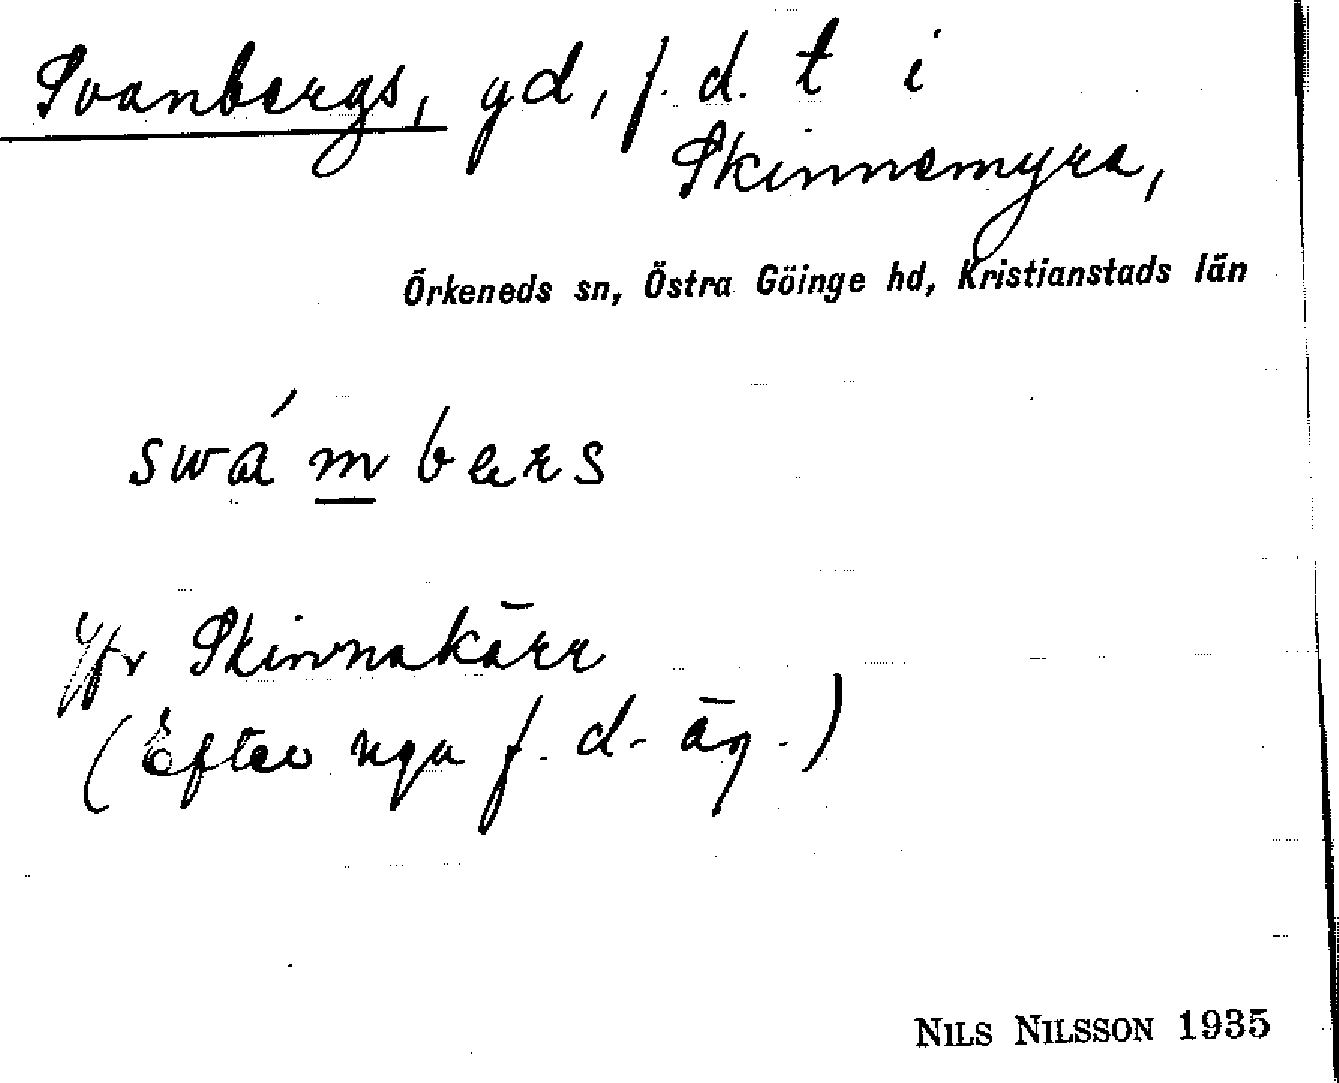 Svanbergs, gd, f. d. t i
Skinnemyra,
Örkeneds sn, Östra Göinge hd, Kristianstads län
swámbærs
Jfr Skinnakärr
(Efter nga f. d. äg.)
NILS NILSSON 1935